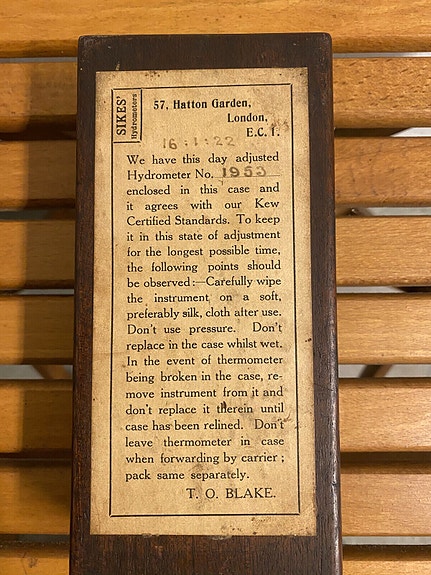 SIKES'
Hydrometers
57, Hatton Garden,
London,
E.C. 1.
16:1:22
We have this day adjusted
Hydrometer No. 1953
enclosed in this case and
it agrees with our Kew
Certified Standards. To keep
it in this state of adjustment
for the longest possible time,
the following points should
be observed:—Carefully wipe
the instrument on a soft,
preferably silk, cloth after use.
Don't use pressure. Don't
replace in the case whilst wet.
In the event of thermometer
being broken in the case, re-
move instrument from it and
don't replace it therein until
case has been relined. Don't
leave thermometer in case
when forwarding by carrier;
pack same separately.
T. O. BLAKE.